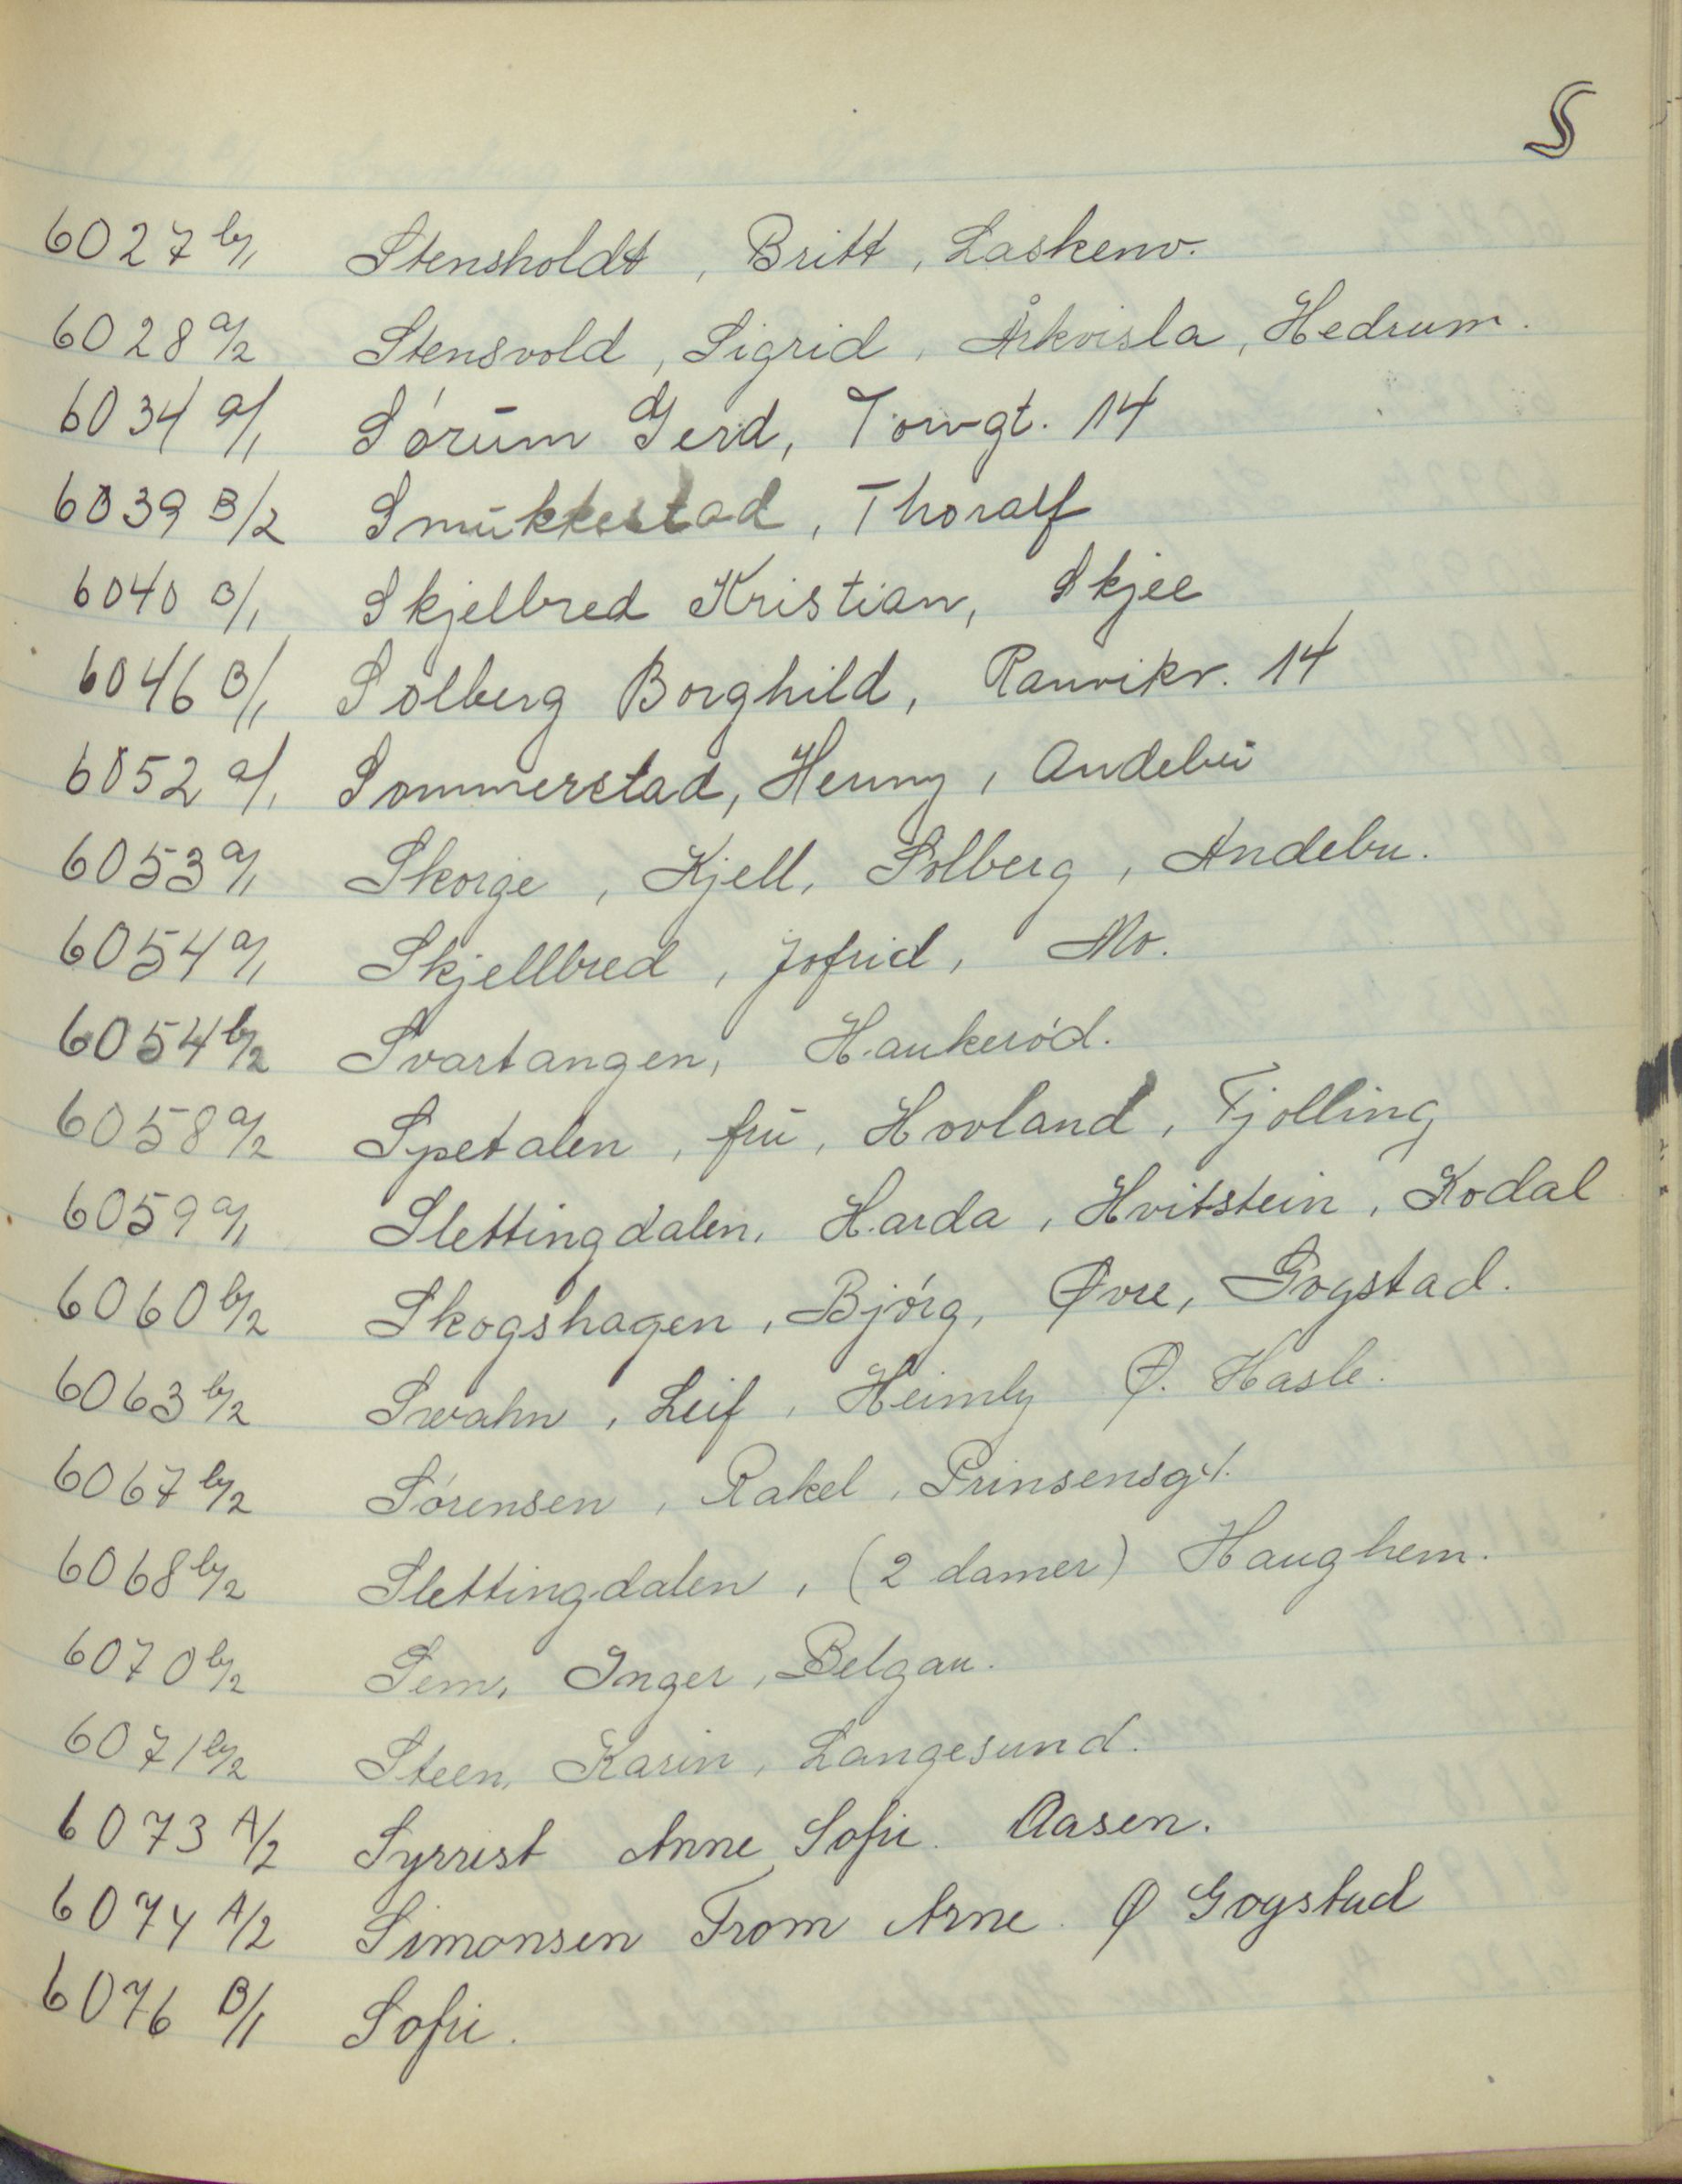 S
6027 b/1 Stensholdt, Britt, Laskenv.
6028 a/2 Stensvold, Sigrid, Åkvisla, Hedrum.
6034 a/1 Sórum Gerd, Torvgt. 14
6039 B/2 Smukkestad, Thoralf
6040 B/1 Skjelbred Kristian, Skjee
6046 B/1 Solberg Borghild, Ranvikv. 14
6052 a/1 Sommerstad, Henny, Andebu
6053 a/1 Skorge, Kjell, Solberg, Andebu.
6054 a/1 Skjellbred, Jofrid, Mo.
6054 b/2 Svartangen, Haukeród.
6058 a/2 Spetalen, fru, Hovland, Tjølling
6059 a/1 Slettingdalen, Harda, Hvitstein, Kodal
6060 b/2 Skogshagen, Bjórg, Øvre, Gogstad.
6063 b/2 Swahn, Leif, Heimly Ø. Hasle.
6067 b/2 Sórensen, Rakel, Prinsensgt.
6068 b/2 Slettingdalen, (2 damer) Haughem.
6070 b/2 Sem, Inger, Belgau.
6071 b/2 Steen, Karin, Langesund.
6073 A/2 Syrrist Anne Sofie. Aasen.
6074 A/2 Simonsen From Arne. Ø Gogstad
6076 B/1 Sofie.